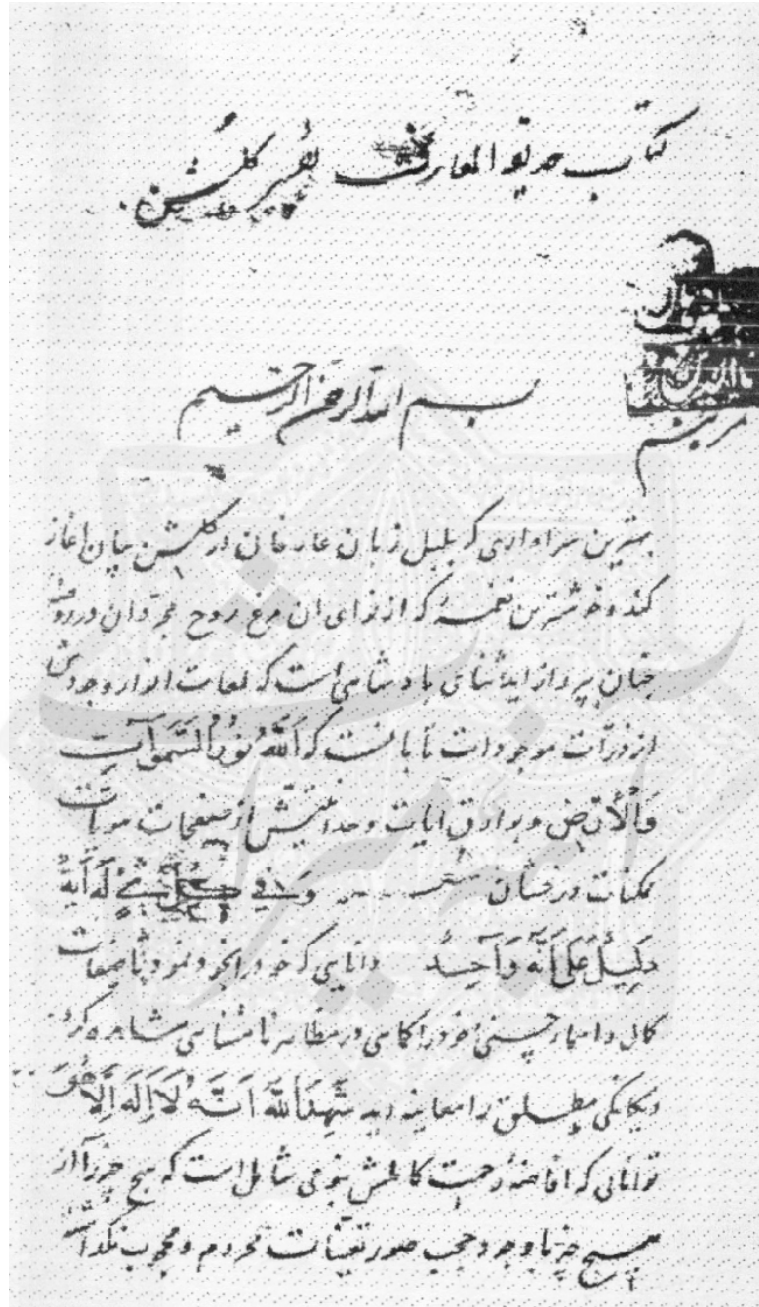 کتاب حدیقه المعارف تفسیر گلشن
بسم الله الرحمن الرحیم
بهترین سراواری که بلبل زبان عارفان در گلشن جان اغاز
کند و خوشترین نغمهٔ که از نوای ان مرغ روح مجردان در
جنان پرواز اید ثنای پادشاهی است که لمعات انوار وجودش
از ذرآت موجودات تابانست که اَللهُ نُورُ السَّمَوَاتِ
وَالْأَرْضِ و بوارق ایات وحدانیتش از صفحات
ممکنات درخشان شعر وَفِي كُلِّ شَيْءٍ لَهُ آيَةٌ
دَلِيلٌ عَلَى أَنَّهُ وَاحِدٌ دانایی که خود را بخود نمود تا صفات
کمال و اسماء حسنی خود را کاهی در مظاهر نامتناهی مشاهده کرده
و یکانکی مطلق را معاینه دید شَهِدَ اللهُ اَنَّهُ لَا اِلَهَ اِلَّا هُوَ
توانائی که افاضهٔ رحمت کاملش بنوعی شامل است که هیچ چیز را از
هیچ چیز با وجود حجب صور تعینات محروم و محجوب نکذا